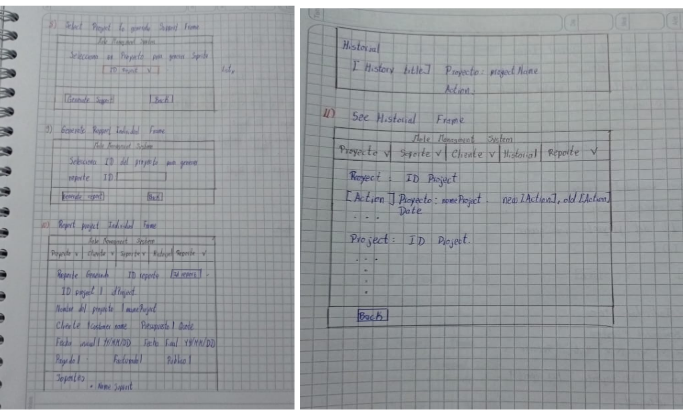 8) Select Project to generate Support Frame
Role Managment System
Selecciona un Proyecto para generar Soporte
ID Project v
Generate Support Back
9) Generate Report Individual Frame
Role Managment System
Selecciona ID del proyecto para generar
reporte ID
Generate report Back
10) Report project Individual Frame
Role Managment System
Proyecto v Cliente v Soporte v Historial Reporte v
Reporte Generado ID reporte
ID project
Nombre del proyecto nameProject
Cliente customer name Presupuesto
Fecha inicial YY/MM/DD Fecha Final YY/MM/DD
Pagado
Soportes
Name Support
Historial
[ History title ] Proyecto: project Name
Action.
11) See Historial Frame
Role Managment System
Proyecto v Soporte v Cliente v Historial Reporte v
Project : ID Project
[Action] Proyecto: nameProject. new [Action], old [Action]
... Date
Project: ID Project.
...
.
.
.
Back